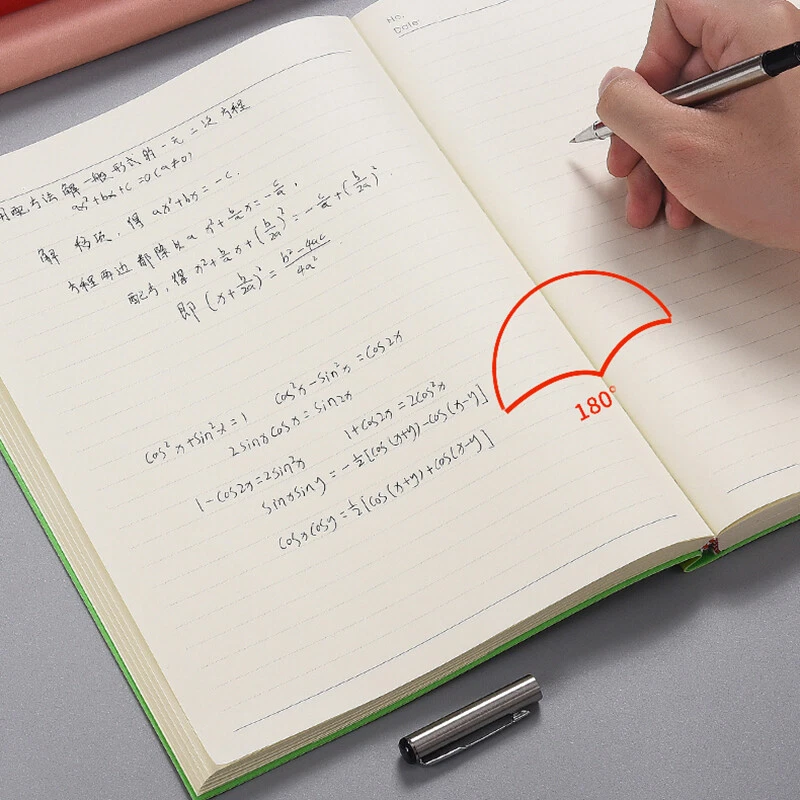 用配方法解一般形式的一元二次方程
ax²+bx+c=0(a≠0)
解 移项,得 ax²+bx=-c.
方程两边都除以a x²+b/a x=-c/a,
配方,得 x²+b/a x+(b/2a)²=-c/a+(b/2a)².
即 (x+b/2a)²=b²-4ac/4a².
cos²x+sin²x=1 cos²x-sin²x=cos2x
2sinxcosx=sin2x
1-cos2x=2sin²x 1+cos2x=2cos²x
sinxsiny=-1/2[cos(x+y)-cos(x-y)]
cosxcosy=1/2[cos(x+y)+cos(x-y)]
No.
Date
180°